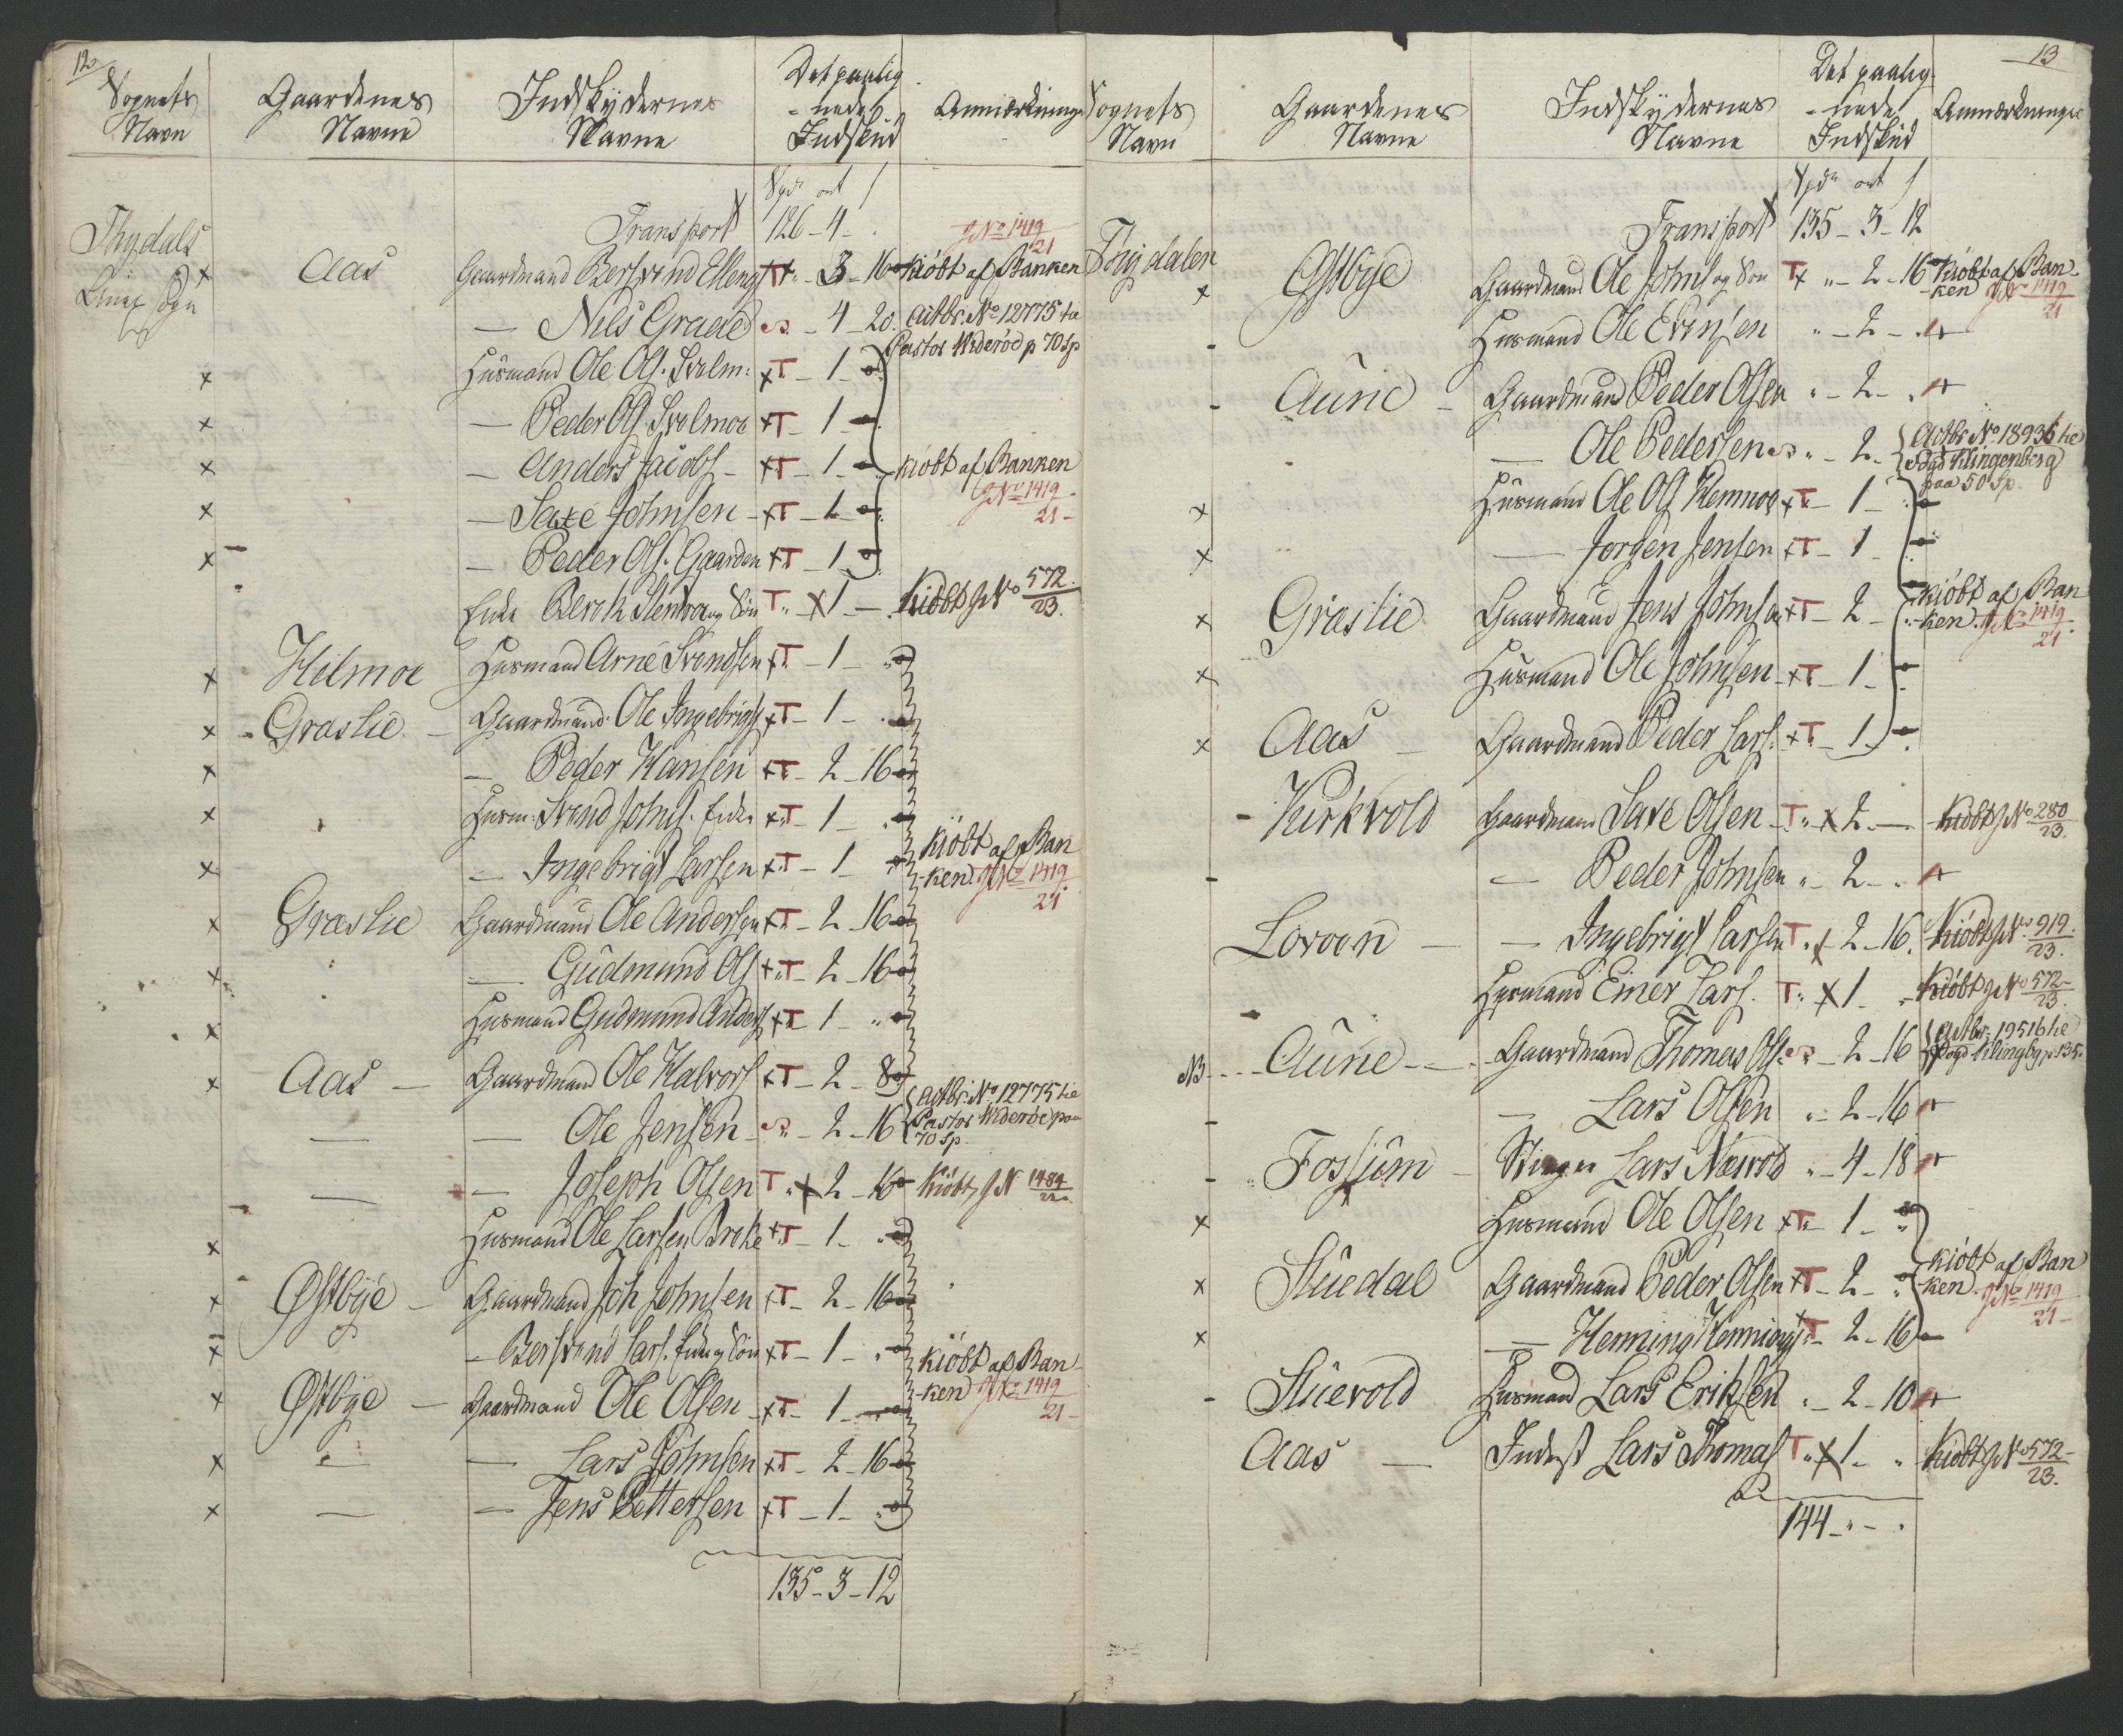 12
Sognets Navn
Gaardenes Navne
Indskydernes Navne
Det paalig-nede Indskud
Anmærkninger
Spdr ort s
Transport 126 - 4 - .
JNo 1419/21
Thydals Anex Sogn
x Aas Gaardmand Bersvend Elleng xT " - 3 - 16 kiöbt af Banken
— Nils Graae " - 4 - 20. Actbr. No 12775 ta
Pastor Widerød p 70 Sp
x Husmand Ole Ols. Svelm: xT - 1 -
x — Peder Ols. Svelmoe xT - 1 -
x — Anders Jacobs - xT - 1 - kiöbt af Banken
x — Saxe Johnsen - xT - 1 - JNo 1419/21 -
x — Peder Ols. Gaarden xT - 1 -
Enke Berth Stenvog og Sön T " - x 1 - . Kiöbt JNo 572/23.
x Hilmoe Husmand Arne Svendsen xT - 1 - "
x - Græslie - Gaardmand Ole Ingebrigts xT - 1 - .
x — Peder Hansen xT - 2 - 16
x Husm: Svend Johns. Enke xT - 1 -
x — Ingebrigt Larsen xT - 1 - Kiöbt af Ban-ken. JNo 1419/21
x Græslie Gaardmand Ole Andersen xT - 2 - 16
x — Gudmund Ols xT - 2 - 16
x Husmand Gudmund Anders xT - 1 - "
x Aas — Gaardmand Ole Halvors xT - 2 - 8
— — Ole Jensen " - 2 - 16 Actbr. No 12775 tie
Pastor Widerøe paa
70 Sp.
— — Joseph Olsen T " x 2 - 16 Kiöbt JN 1484/22
x Husmand Ole Larsen Broke xT - 1 - "
x Østbye - Gaardmand Joh Johnsen xT - 2 - 16
x — Bersvend Lars. Enke og Sön xT - 1 - . Kiöbt af Ban-
x Østbye — Gaardmand Ole Olsen - xT - 1 - -ken JNo 1419/21 -
x — — Lars Johnsen xT - 2 - 16
x — — Jens Pettersen xT - 1 - "
135 - 3 - 12
13
Sognets Navn
Gaardenes Navne
Indskydernes Navne
Det paalig-nede Indskud
Anmærkninger
Spdr ort s
Transport 135 - 3 - 12
Thydalen
x Østbye Gaardmand Ole Johns og Son Tx " - 2 - 16 Kiöbt af Ban-ken JNo 1419/21
- Husmand Ole Evensen " - 2 - .
- Aune - Gaardmand Peder Olsen " - 2 - .
- — Ole Pedersen " - 2 - Actbr No 18936 tie
Fogd Klingenberg
paa 50 Sp.
x Husmand Ole Ols Hemmoe xT - 1 -
x — Jorgen Jensen xT - 1 -
x Græslie Gaardmand Jens Johnsen xT - 2 - kiöbt af Ban-ken. JNo 1419/21
x Husmand Ole Johnsen xT - 1 -
x Aas - Gaardmand Peder Lars. xT - 1 -
- Kirkvold Gaardmand Saxe Olsen T " x 2 - Kiöbt JNo 280/23.
- — Peder Johnsen " - 2 - .
Lovoen — — Ingebrigt Larsen T " x 2 - 16. Kiöbt JNo 919/23.
Husmand Einer Lars. T " x 1 " - Kiöbt JNo 572/23.
NB - Aune - Gaardmand Thomas Ols. " - 2 - 16 Actbr: 19516 tie
Fogd Klingbg p 135.
- — Lars Olsen " - 2 - 16
- Fossum - Lars Næsvold " - 4 - 18
x Husmand Ole Olsen xT " 1 -
x Stuedal Gaardmand Peder Olsen xT - 2 - " kiöbt af Ban-ken. JNo 1419/21 -
x — Henning Hennings xT - 2 - 16
- Stuevold Husmand Lars Eriksen " - 2 - 10
Aas — Inderst Lars Thomas T " x 1 - " Kiöbt JNo 572/23.
144 - " - "